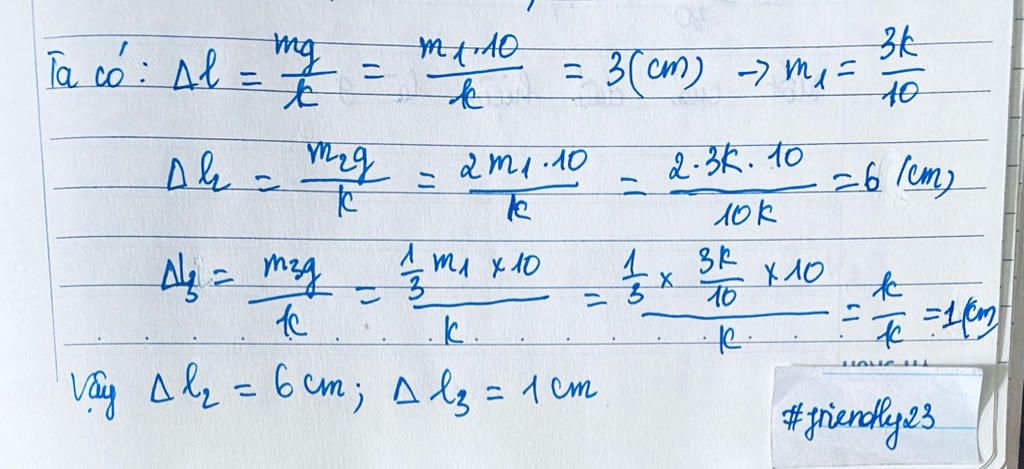 Ta có: Δl = mg/k = m₁.10/k = 3 (cm) → m₁ = 3k/10
Δl₂ = m₂g/k = 2m₁.10/k = 2.3k.10/10k = 6 (cm)
Δl₃ = m₃g/k = 1/3 m₁ x 10/k = 1/3 x 3k/10 x 10/k = k/k = 1 (cm)
Vậy Δl₂ = 6 cm; Δl₃ = 1 cm
#friendly23